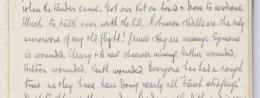 when the tender came. Got our kit on board & bore to aerodrome.
Much to talk over with the C.O. Robinson & Wells are the only
survivors of my old flight! James & Key are missing. Symons
is wounded. Cleary & a new observer missing. Withers wounded.
Hilton wounded. Keith wounded. Everyone has had a rough
time as they have been doing nearly all "trench strafing"